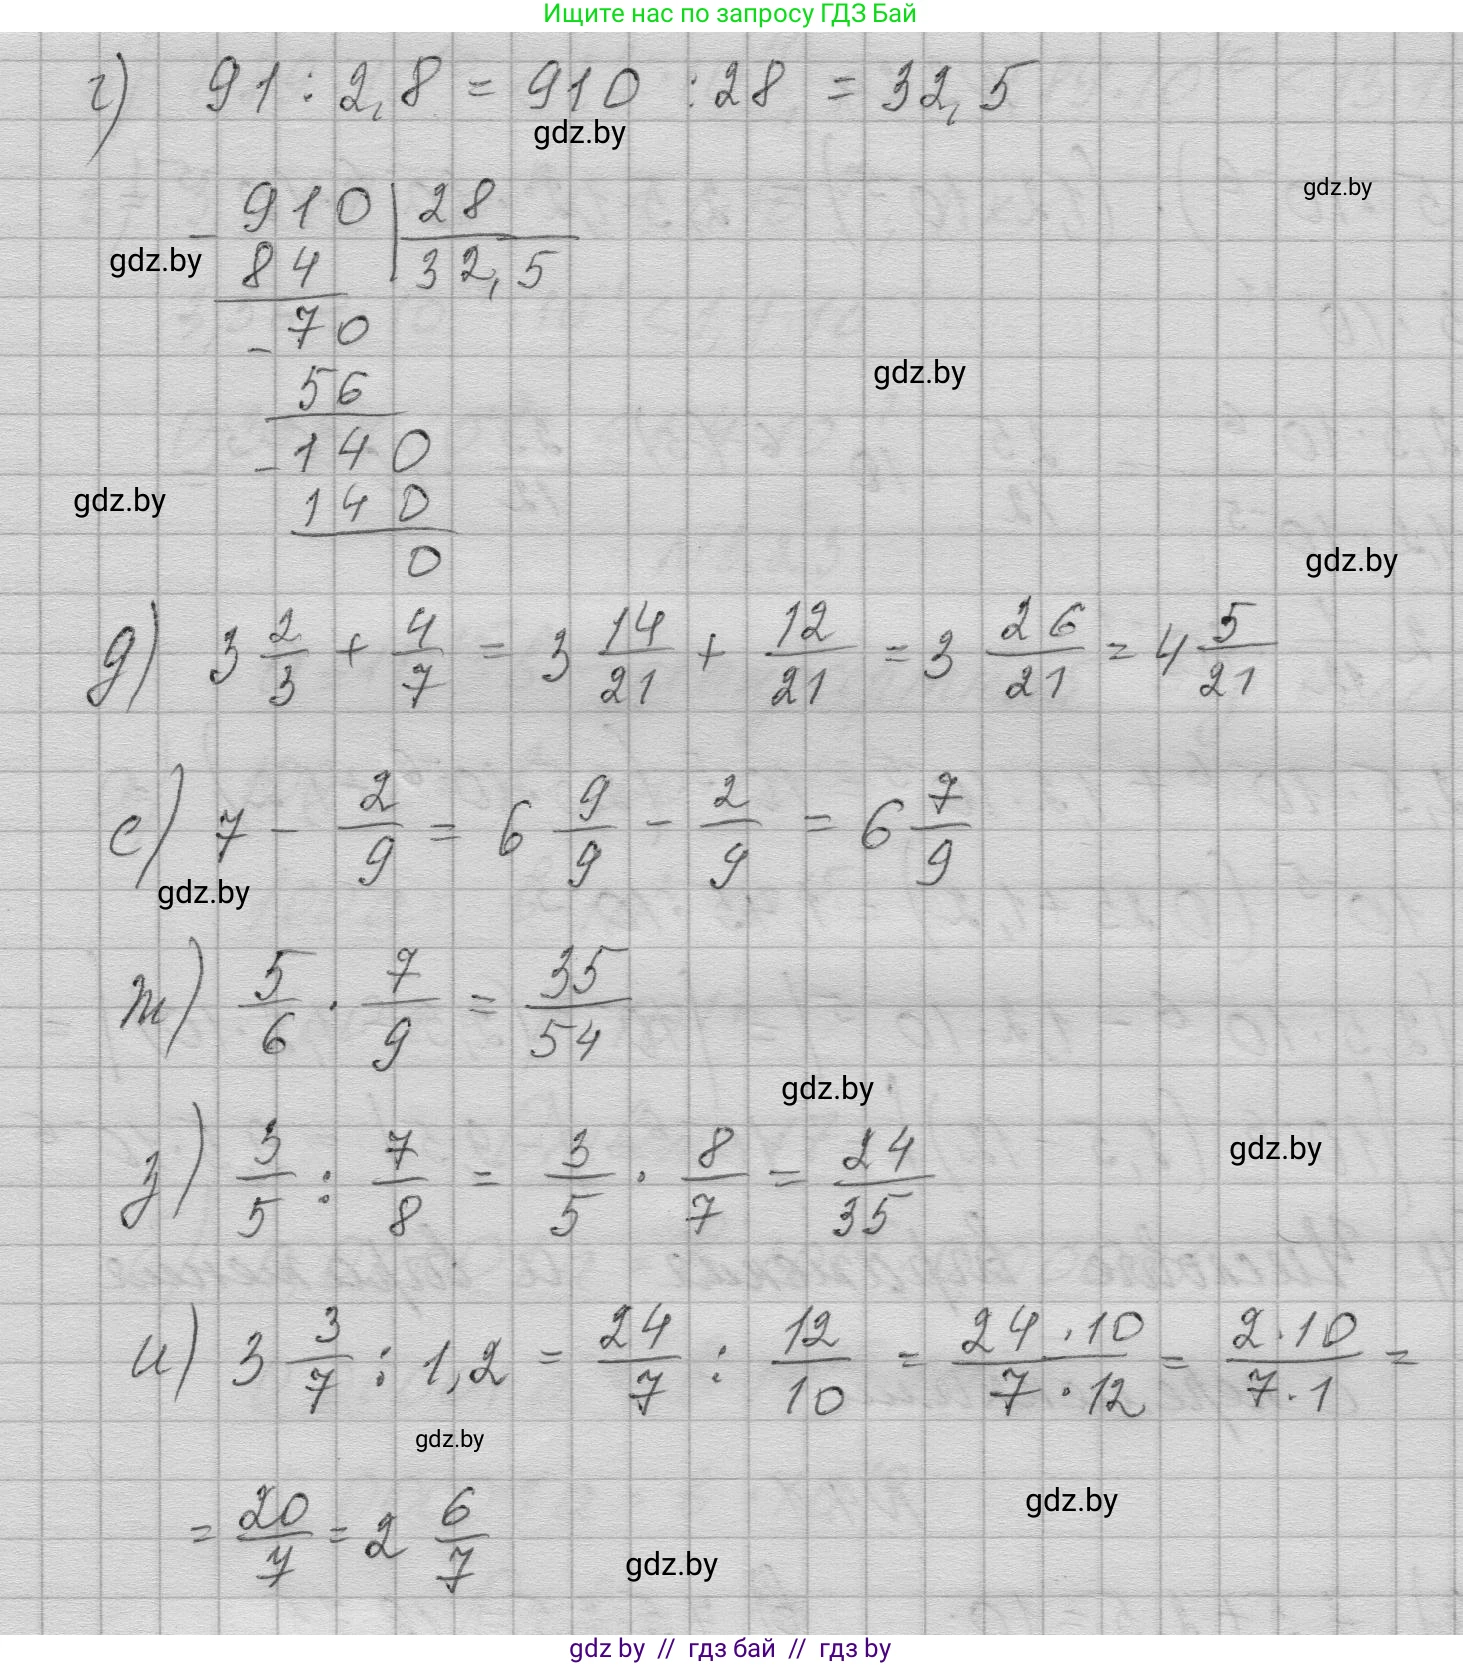 Ищите нас по запросу ГДЗ Бай
г) 91 : 2,8 = 910 : 28 = 32,5
gdz.by
gdz.by
- 910 | 28
gdz.by
84 | 32,5
- 70
gdz.by
56
- 140
gdz.by
140
gdz.by
0
д) 3 2/3 + 4/7 = 3 14/21 + 12/21 = 3 26/21 = 4 5/21
е) 7 - 2/9 = 6 9/9 - 2/9 = 6 7/9
gdz.by
ж) 5/6 · 7/9 = 35/54
gdz.by
з) 3/5 : 7/8 = 3/5 · 8/7 = 24/35
gdz.by
и) 3 3/7 : 1,2 = 24/7 : 12/10 = 24 · 10/7 · 12 = 2 · 10/7 · 1 =
gdz.by
= 20/7 = 2 6/7
gdz.by
gdz.by
gdz by // гдз бай // гдз by